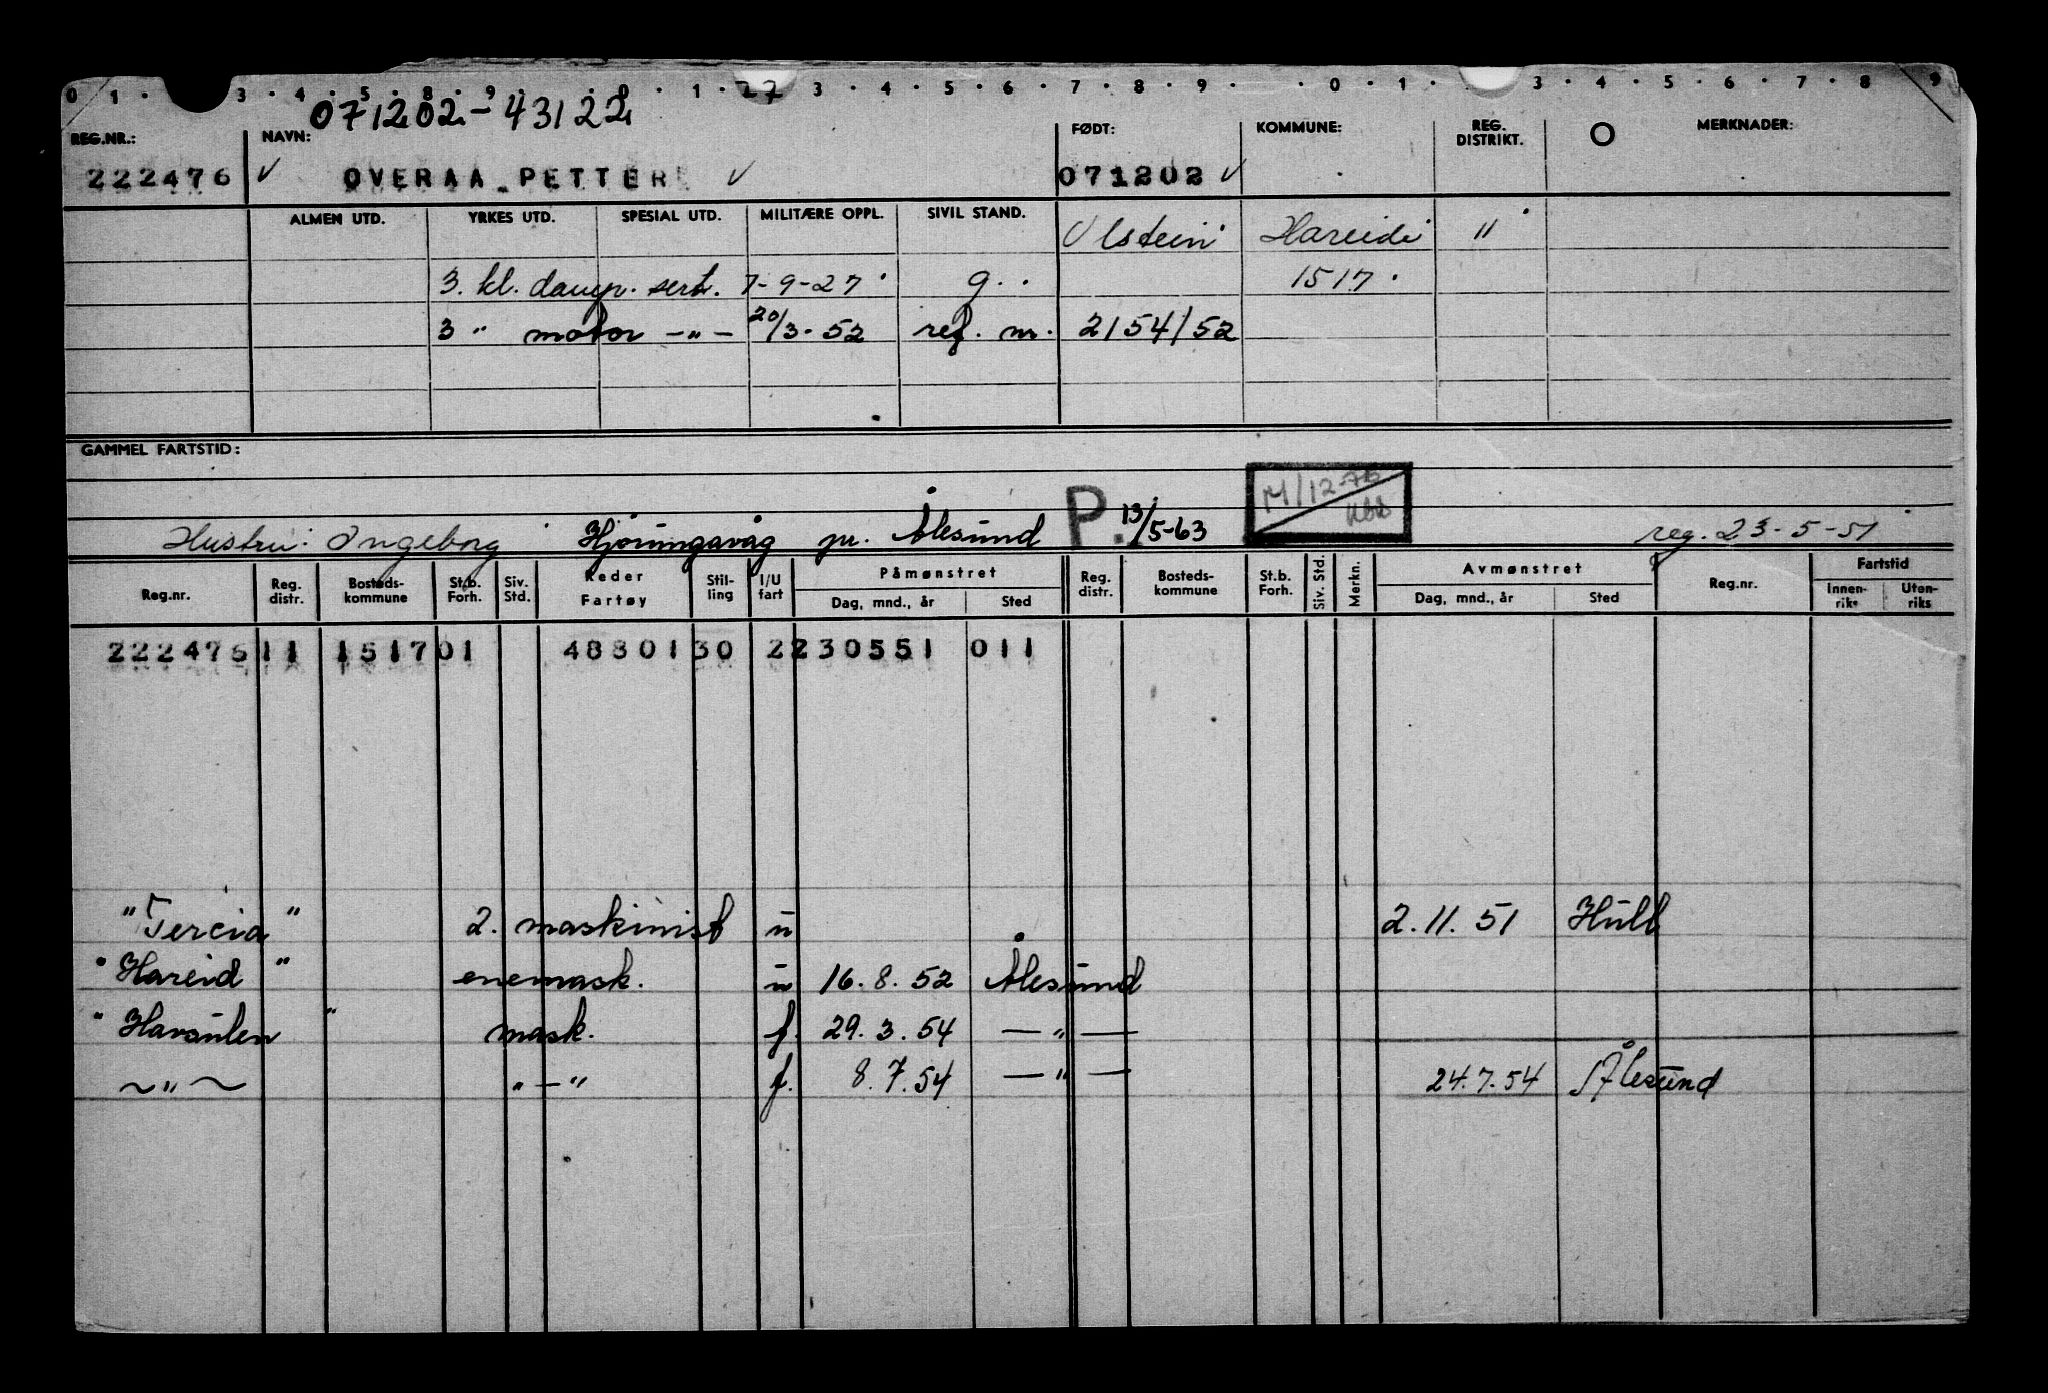 0 1 · 3 · 4 · 5 · 8 · 9 · 0 · 1 · 27 3 · 4 · 5 · 6 · 7 · 8 · 9 · · 0 · 1 · 3 · 4 · 5 · 6 · 7 · 8 9
071202-43122
REG.NR.: NAVN: FØDT: KOMMUNE: REG. DISTRIKT. O MERKNADER:
222476 ✓ OVERAA PETTER ✓ 071202 ✓
ALMEN UTD. YRKES UTD. SPESIAL UTD. MILITÆRE OPPL. SIVIL STAND. Ulstein Hareide 11
3. kl. damp. sert. 7-9-27 g. 1517
3 " motor -"- 20/3-52 ref. nr. 2154/52
GAMMEL FARTSTID:
M/12-73
Hustru: Ingeborg Hjørungavåg pr. Ålesund P. 13/5-63 reg. 23-5-51
Reg.nr. Reg. distr. Bosteds- kommune St.b. Forh. Siv. Std. Reder Fartøy Stil- ling I/U fart Påmønstret Dag, mnd., år Sted Reg. distr. Bosteds- kommune St.b. Forh. Siv. Std. Merkn. Avmønstret Dag, mnd., år Sted Reg.nr. Fartstid Innen- riks Uten- riks
222476 11 1517 01 48301 30 2 230551 011
"Tercia" 2. maskinist u 2.11.51 Hull
"Hareid" enemask. u 16.8.52 Ålesund
"Havsulen" mask. f. 29.3.54 -"-
~"~ "-" f. 8.7.54 -"- 24.7.54 Ålesund